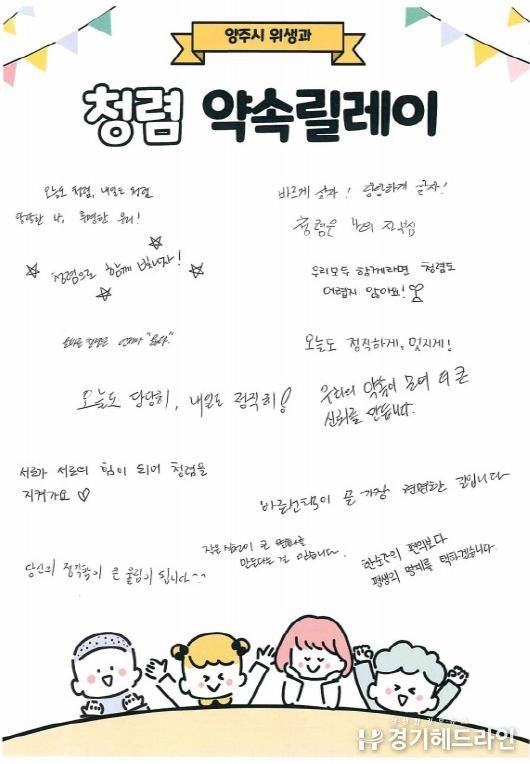 양주시 위생과
청렴 약속릴레이
오늘도 청렴, 내일도 청렴
당당한 나, 투명한 우리!
바르게 살자! 당당하게 살자!
청렴은 나의 자부심
청렴으로 함께 빛나자!
우리모두 함께라면 청렴도
어렵지 않아요!
오늘도 정직하게, 멋지게!
오늘도 당당히, 내일도 정직히!
우리의 약속이 모여 더 큰
신뢰를 만듭니다.
서로가 서로의 힘이 되어 청렴을
지켜가요 ♡
바른선택이 곧 가장 현명한 길입니다
작은 실천이 큰 변화를
만든다는 걸 믿습니다.
당신의 정직함이 큰 울림이 됩니다^^
한순간의 편의보다
평생의 명예를 택하겠습니다.
경기헤드라인